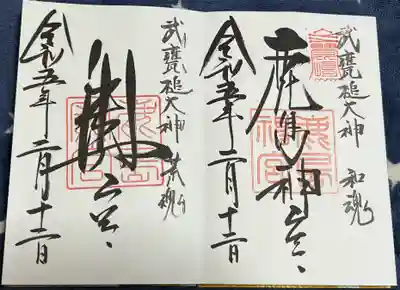 武甕槌大神 和魂
鹿島神宮
鹿島神宮
令和五年二月十二日
武甕槌大神 荒魂
奥宮
令和五年二月十二日